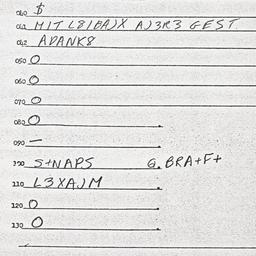 040 $
041 HIT L8IBAJX AJ3R3 GEST
042 ADANK8
050 O
060 O
070 O
080 O
090 —
100 S+NAPS G. BRA+F+
110 L3XAJM
120 O
130 O